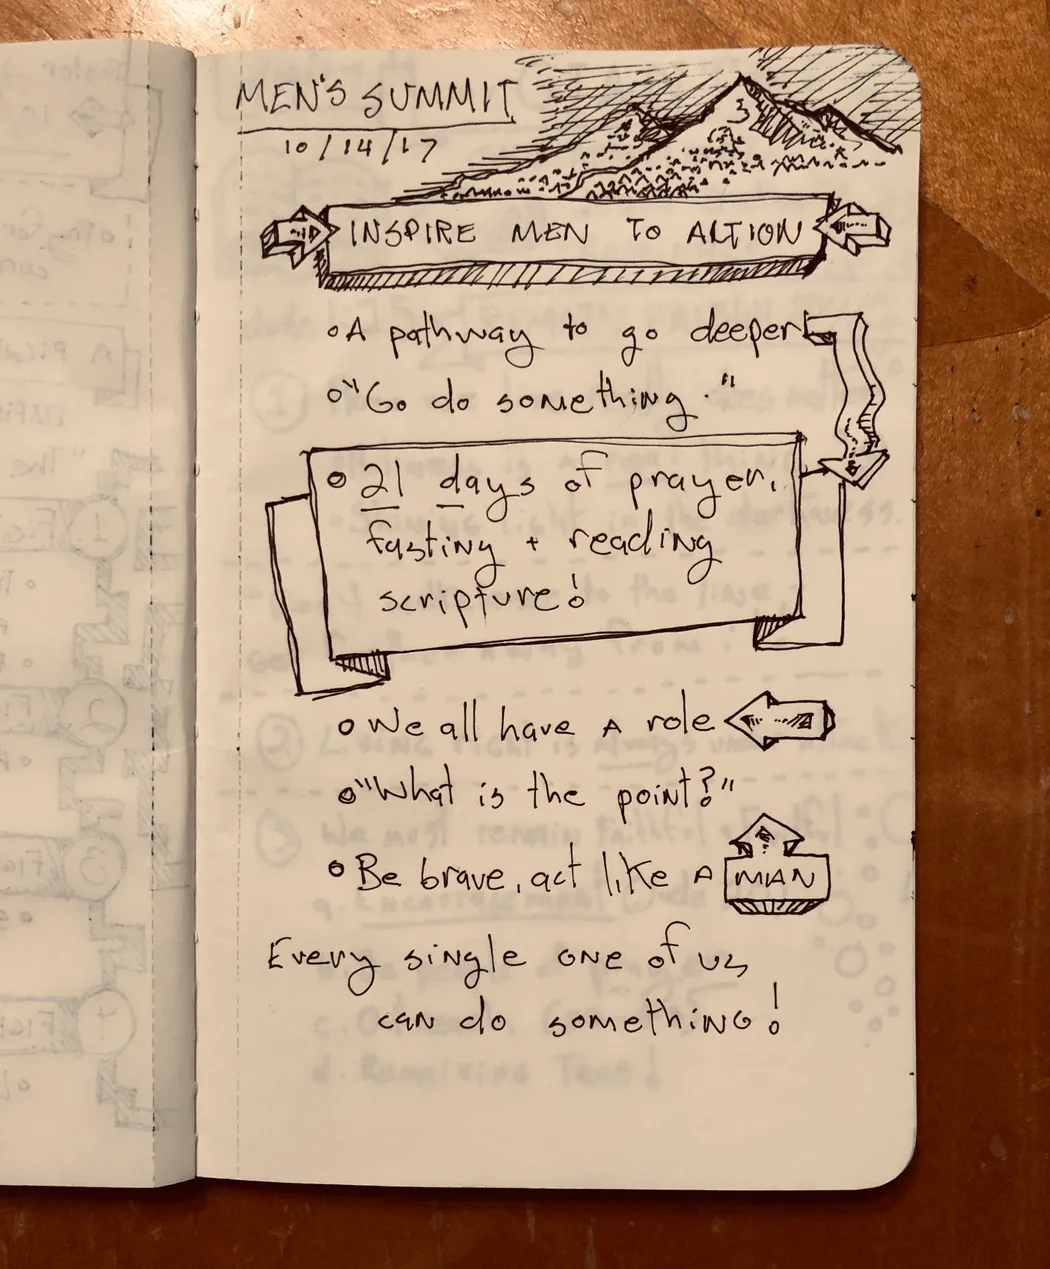 MEN'S SUMMIT
10/14/17
INSPIRE MEN TO ACTION
A pathway to go deeper
"Go do something."
21 days of prayer,
fasting + reading
scripture!
We all have A role
"What is the point?"
Be brave, act like A MAN
Every single one of us
can do something!